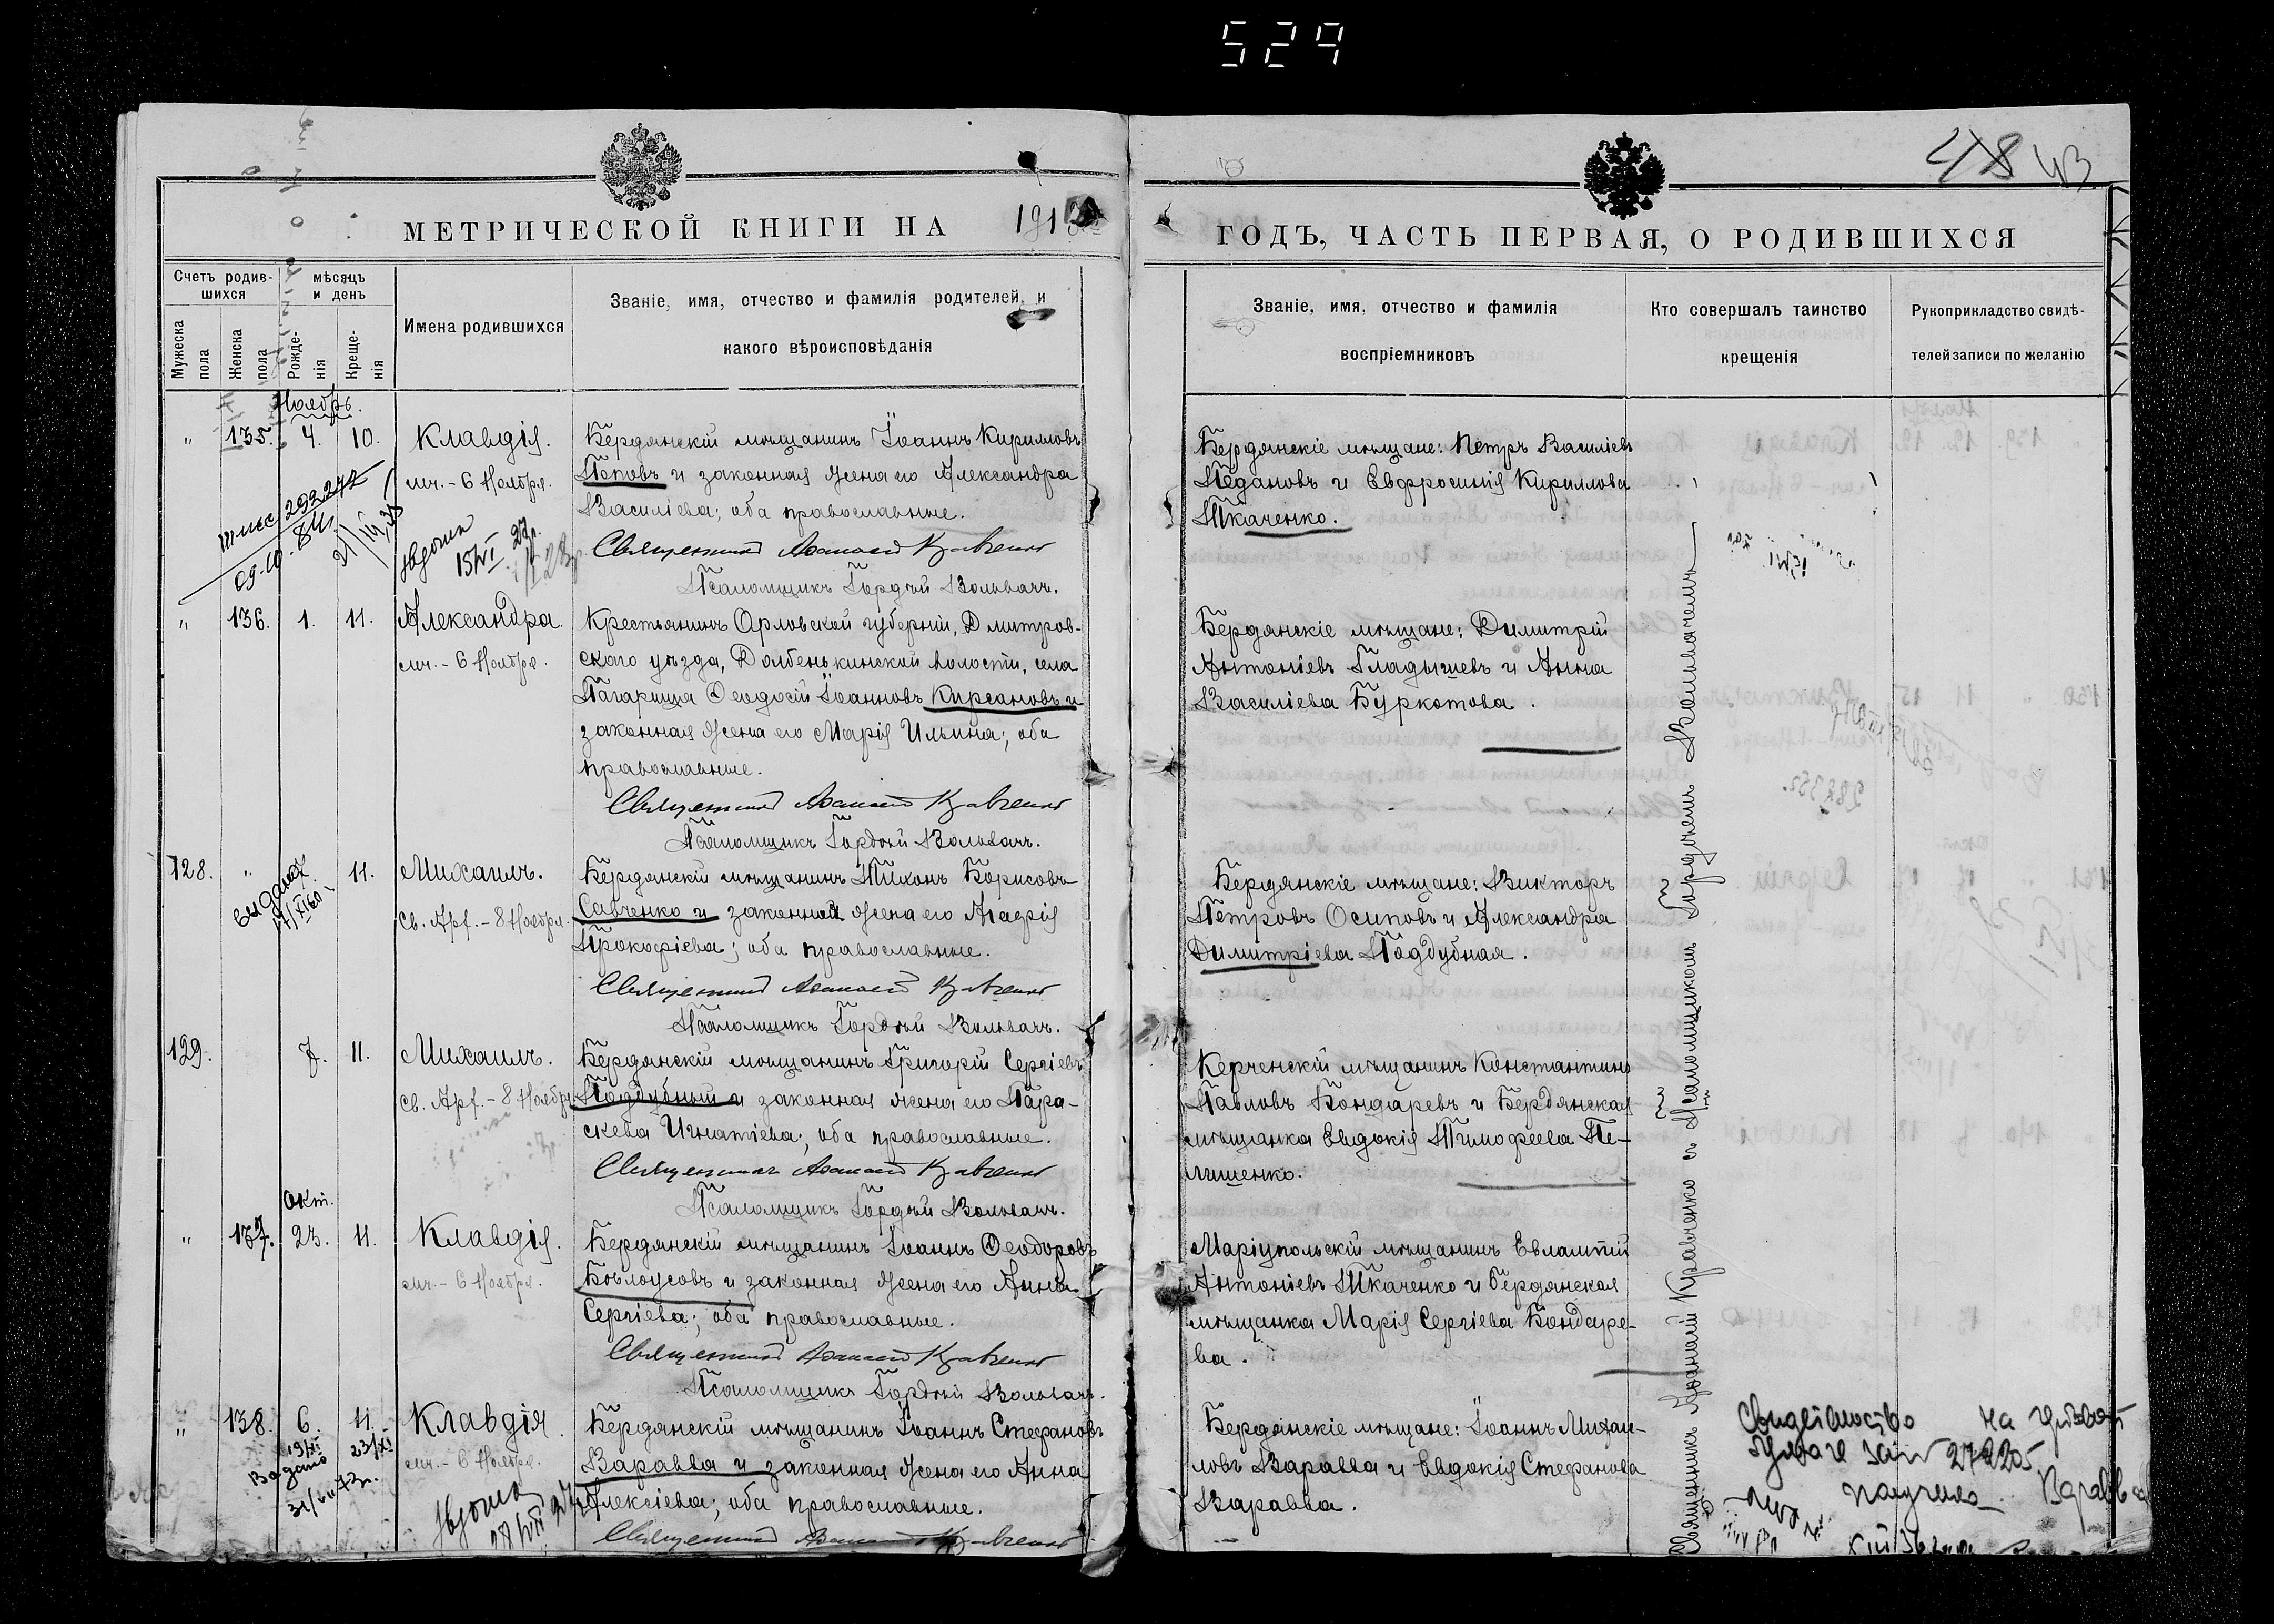 529
48 43
МЕТРИЧЕСКОЙ КНИГИ НА 1912
ГОДЪ, ЧАСТЬ ПЕРВАЯ, О РОДИВШИХСЯ
Счетъ родив-
шихся
Мужеска
пола
Женска
пола
мѣсяцъ
и день
Рожде-
нія
Креще-
нія
Имена родившихся
Званіе, имя, отчество и фамилія родителей, и
какого вѣроисповѣданія
Званіе, имя, отчество и фамилія
воспріемниковъ
Кто совершалъ таинство
крещенія
Рукоприкладство свидѣ-
телей записи по желанію
Ноябрь.
" 135. 4. 10. Клавдія.
мч. - 6 Ноября.
Бердянскій мѣщанинъ Іоаннъ Кирилловъ
Поповъ и законная жена его Александра
Василіева; оба православные.
Священникъ Аѳанасій Кравченко
Псаломщикъ Гордѣй Вольвачъ.
Бердянскіе мѣщане: Петръ Василіевъ
Педановъ и Евфросинія Кириллова
Ткаченко.
" 136. 1. 11. Александра.
мч. - 6 Ноября.
Крестьянинъ Орловской губерніи, Дмитров-
скаго уѣзда, Долбенькинской волости, села
Погарища Ѳеодосій Іоанновъ Кирсановъ и
законная жена его Марія Ильина; оба
православные.
Священникъ Аѳанасій Кравченко
Псаломщикъ Гордѣй Вольвачъ.
Бердянскіе мѣщане: Димитрій
Антоніевъ Гладышевъ и Анна
Василіева Буркотова.
128. " 7. 11. Михаилъ.
Св. Арх. - 8 Ноября.
Бердянскій мѣщанинъ Тихонъ Борисовъ
Савченко и законная жена его
Прокофіева; оба православные.
Священникъ Аѳанасій Кравченко
Псаломщикъ Гордѣй Вольвачъ.
Бердянскіе мѣщане: Викторъ
Петровъ Осиповъ и Александра
Димитріева Поддубная.
129. 7. 11. Михаилъ.
Св. Арх. - 8 Ноября.
Бердянскій мѣщанинъ Григорій Сергіевъ
Поддубный и законная жена его Пара-
скева Игнатіева; оба православные.
Священникъ Аѳанасій Кравченко
Псаломщикъ Гордѣй Вольвачъ.
Керченскій мѣщанинъ Константинъ
Павловъ Бондаревъ и Бердянская
мѣщанка Евдокія Тимофеева Пе-
лишенко.
Окт.
" 137. 23. 11. Клавдія.
мч. - 6 Ноября.
Бердянскій мѣщанинъ Іоаннъ Ѳеодоровъ
Бѣлоусовъ и законная жена его Анна
Сергіева; оба православные.
Священникъ Аѳанасій Кравченко
Псаломщикъ Гордѣй Вольвачъ.
Маріупольскій мѣщанинъ Евлампій
Антоніевъ Ткаченко и бердянская
мѣщанка Марія Сергіева Бондаре-
ва.
" 138. 6. 11. Клавдія.
мч. - 6 Ноября.
Бердянскій мѣщанинъ Іоаннъ Стефановъ
Варавва и законная жена его Анна
Алексіева; оба православные.
Священникъ Аѳанасій Кравченко
Бердянскіе мѣщане: Іоаннъ Михаи-
ловъ Варавва и Евдокія Стефанова
Варавва.
Священникъ Аѳанасій Кравченко с Псаломщикомъ Гордѣемъ Вольвачемъ
получила Варавва